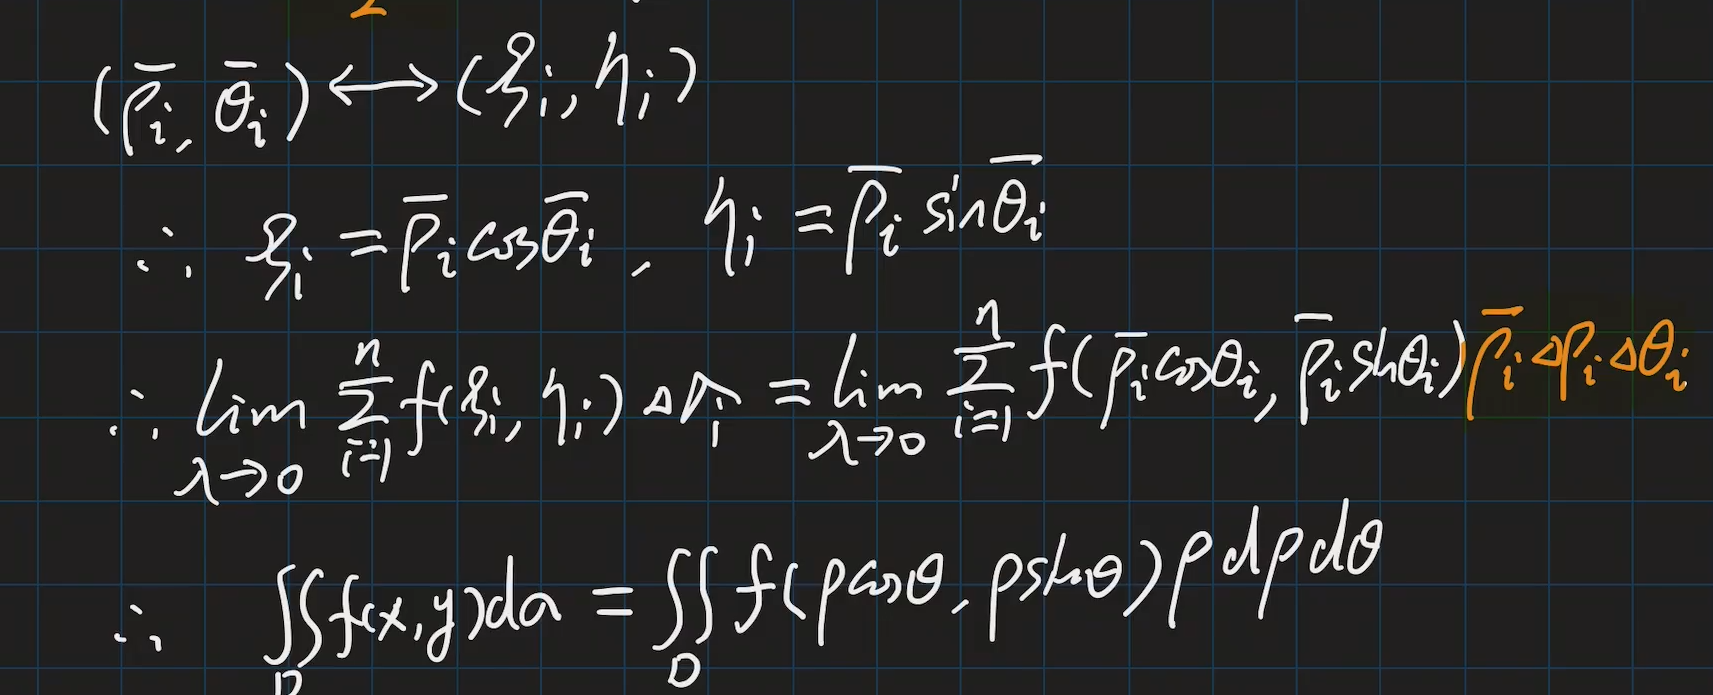 (ρ̄ᵢ, θ̄ᵢ) ⟷ (ξᵢ, ηᵢ)
∴ ξᵢ = ρ̄ᵢ cosθ̄ᵢ, ηᵢ = ρ̄ᵢ sinθ̄ᵢ
∴ lim_{λ→0} Σ_{i=1}^{n} f(ξᵢ, ηᵢ) Δσᵢ = lim_{λ→0} Σ_{i=1}^{n} f(ρ̄ᵢ cosθᵢ, ρ̄ᵢ sinθᵢ) ρ̄ᵢ Δρᵢ Δθᵢ
∴ ∬_D f(x,y)dσ = ∬_D f(ρcosθ, ρsinθ) ρ dρ dθ